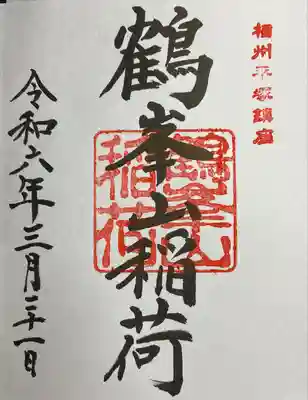 相州平塚鎮座
鶴峯山稲荷
鶴峯山
稲荷
令和六年三月二十一日